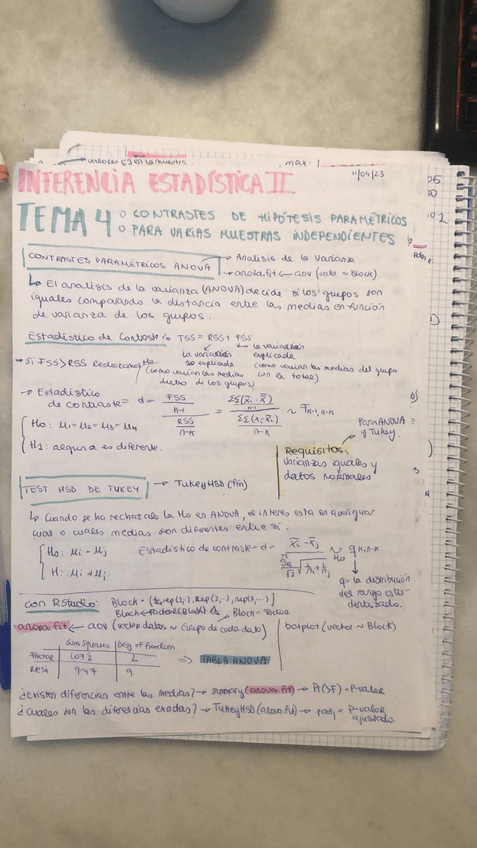 valores
max
11/04/23
INFERENCIA ESTADÍSTICA II
TEMA 4
○ CONTRASTES DE HIPÓTESIS PARAMÉTRICOS
○ PARA VARIAS MUESTRAS INDEPENDIENTES
CONTRASTES PARAMÉTRICOS ANOVA → Análisis de la varianza
→ anova.fit ← aov (valor ~ Block)
↳ El análisis de la varianza (ANOVA) decide si los grupos son
iguales comparando la distancia entre las medias en función
de varianza de los grupos.
Estadístico de Contraste: TSS = RSS + FSS
la variación no explicada
(como varían las medias dentro de los grupos)
la variación explicada
(como varían las medias del grupo con el total)
· Si FSS > RSS Rechazamos H0
→ Estadístico de contraste = d = FSS/k-1 / RSS/n-k
~ Fk-1, n-k
H0: μ1 = μ2 = μ3 = μ4
H1: alguna es diferente.
Para ANOVA y Tukey
Requisitos:
varianzas iguales y
datos normales
TEST HSD DE TUKEY → TukeyHSD (fm)
↳ Cuando se ha rechazado la H0 en ANOVA, el interés está en averiguar
cual o cuales medias son diferentes entre sí.
H0: μi = μj
H1: μi ≠ μj
Estadístico de contraste = d = x̄i - x̄j
~ H0 q k, n-k
q = la distribución
del rango estu-
dentizado.
Con RStudio: Block = (
Block ← factor(Block)
Block = Factor
anova.fit ← aov (vector datos ~ Grupo de cada dato)
boxplot (vector ~ Block)
Sum Squares Deg of Freedom
Factor 1072 2
Resi 947 9
⇒ TABLA ANOVA
¿Existen diferencias entre las medias? → summary (anova.fit) → Pr(>F) = P-valor
¿Cuáles son las diferencias exactas? → TukeyHSD (anova.fit) → padj = p-valor
ajustado.